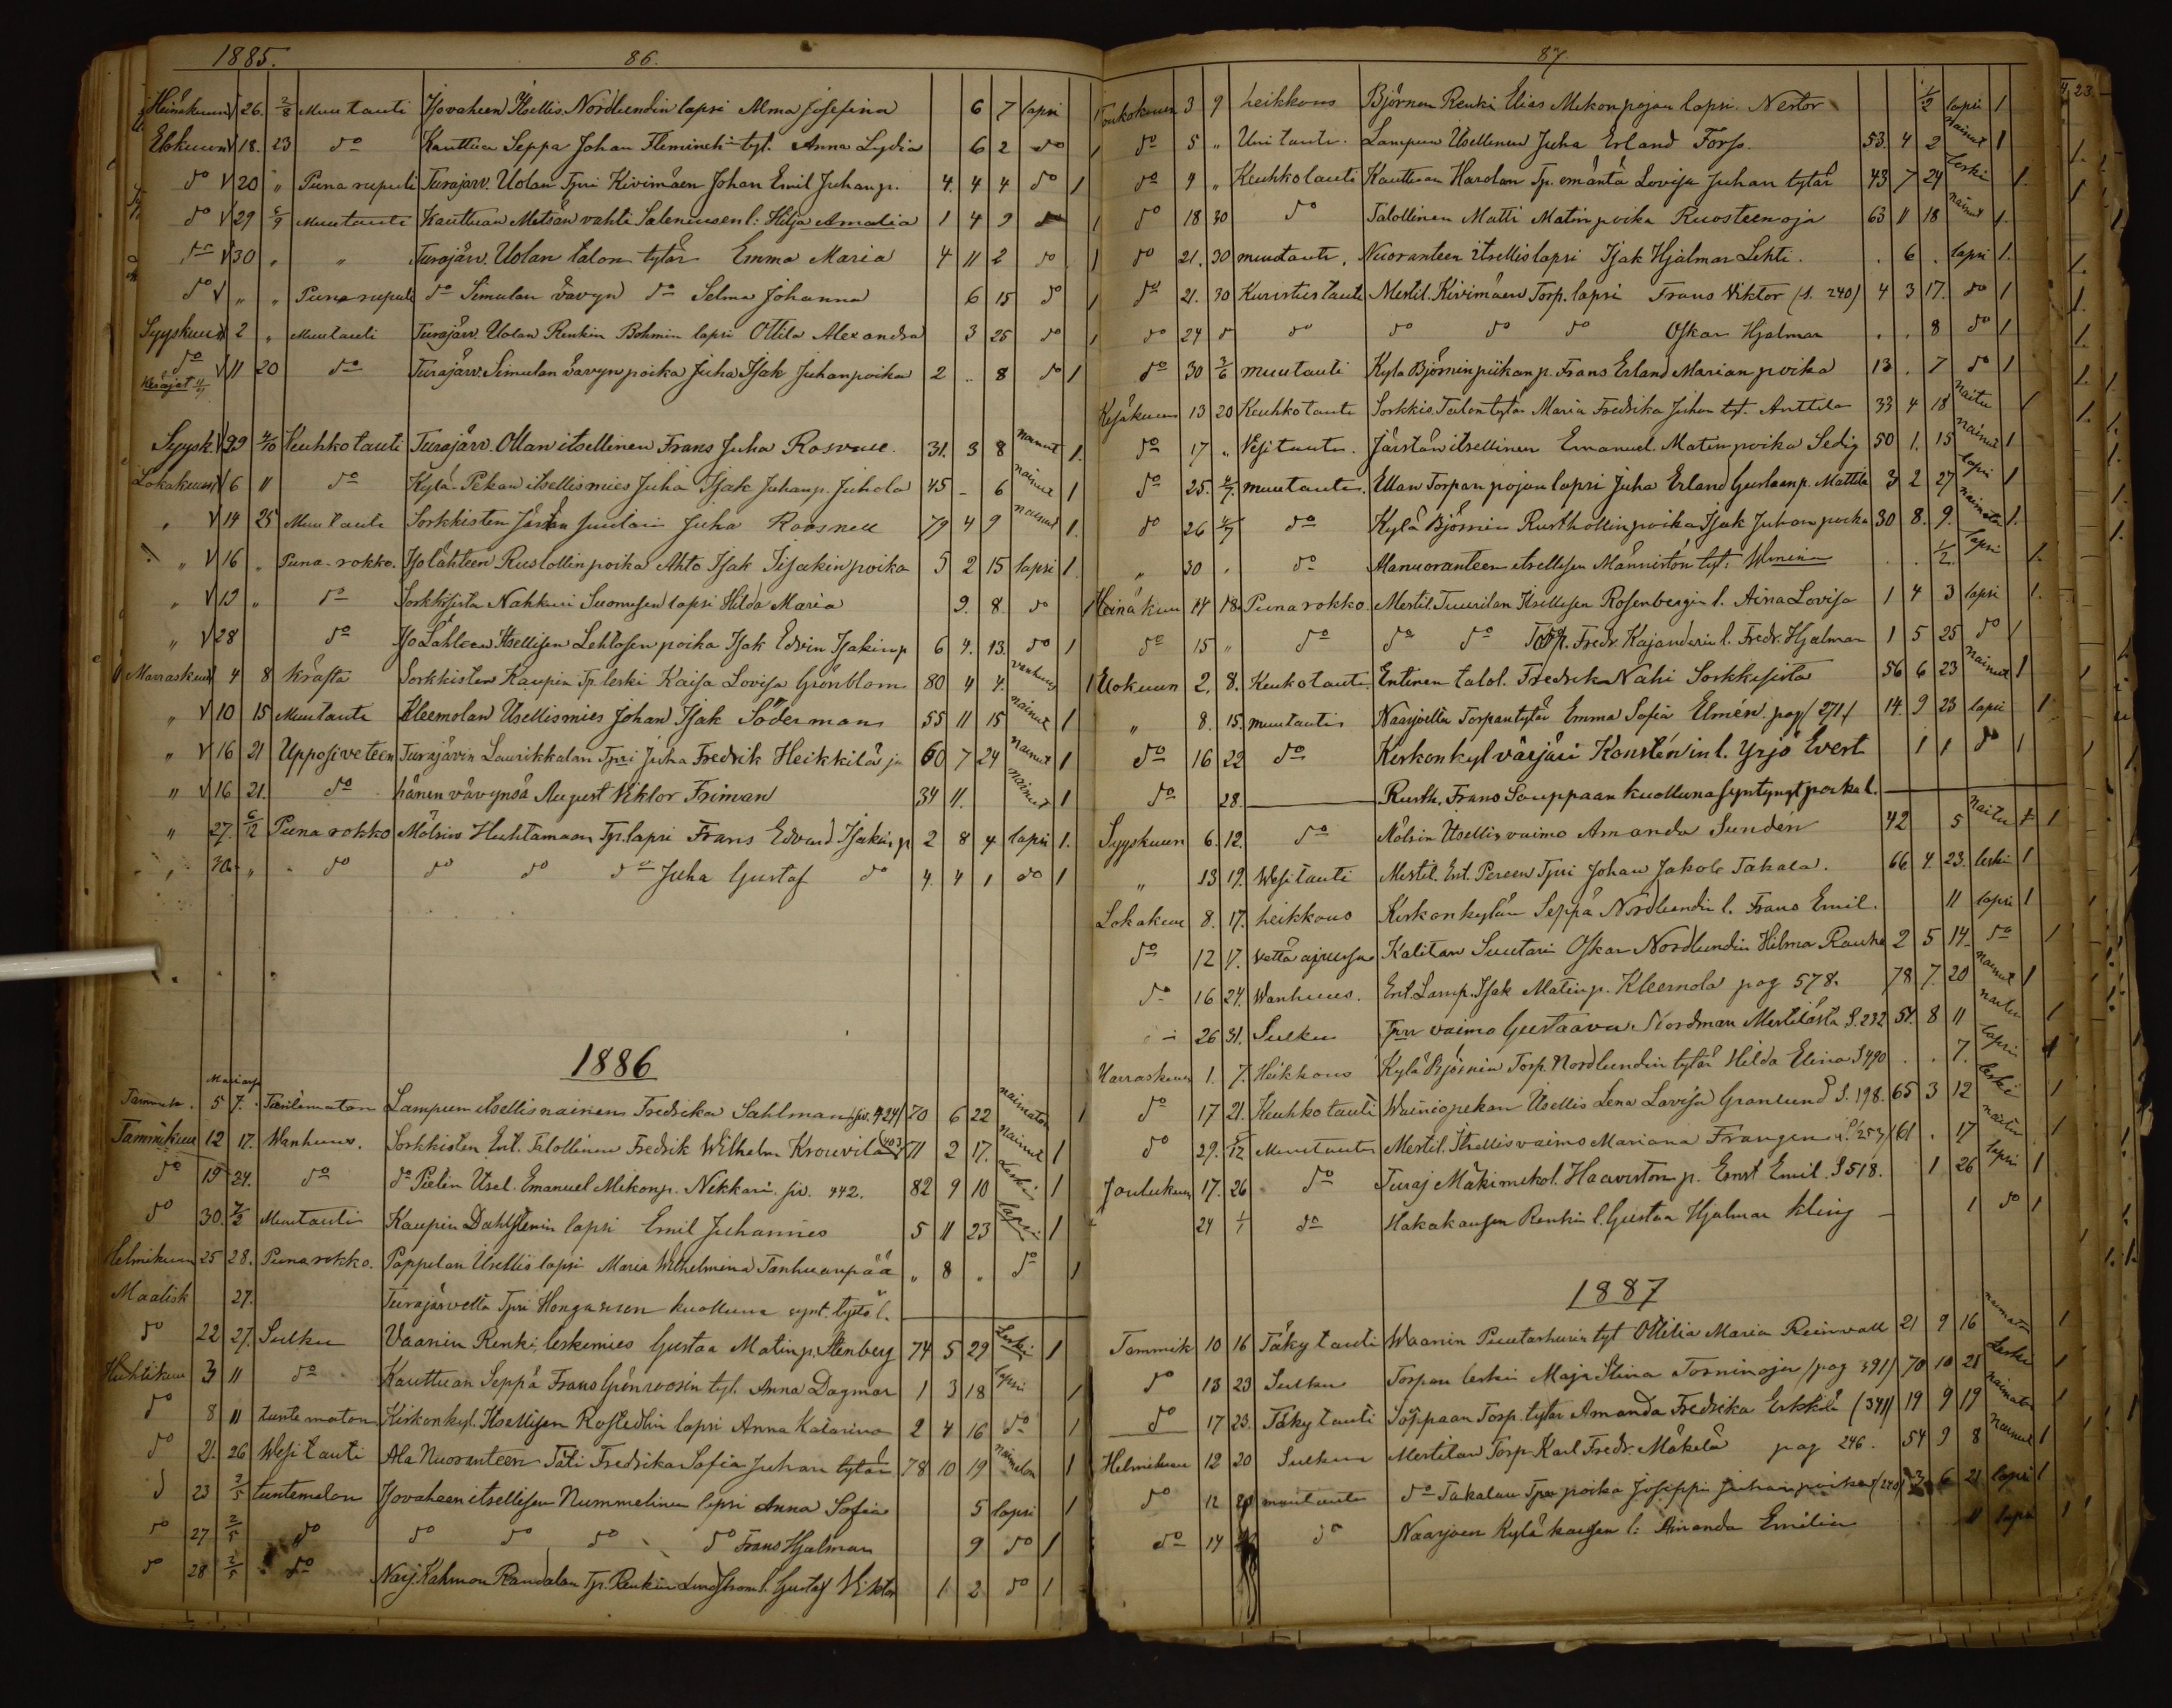 1885. 86.
Heinäkuun 26. 2/8 Muu tauti Isovaheen Itsellis. Nordlundin lapsi Alma Josefina 6 7 lapsi
Elokuun 18. 23 do Kauttua Seppä Johan Fleminch tyt. Anna Lydia 6 2 do 1
do 20 " Puna rupuli Turajärv. Uolan Tpri Kivimäen Johan Emil Juhanp. 4. 4 4 do 1
do 29 6/9 Muu tauti Kauttuan Metsän vahti Saleniusen l: Hilja Amalia 1 4 9 do 1
do 30 " " Turajärv. Uolan talon tytär Emma Maria 4 11 2 do 1
do " " Puna rupuli do Simulan vävyn do Selma Johanna 6 15 do 1
Syyskuun 2 " Muu tauti Turajärv. Uolan Renkin Bohmin lapsi Ottila Alexandra 3 25 do 1
do 11 20 do Turajärv. Simulan vävyn poika Juha Isak Juhanpoika 2 .. 8 do 1
Keräjät
Syysk. 29 4/10 Keuhkotauti Turajärv. Ollan itsellinen Frans Juha Rosvall. 31. 3 8 nainut 1.
Lokakuun 6 11 do Kylä-Pekan itsellismies Juha Isak Juhanp. Juhola 45 - 6 nainut 1
" 14 25 Muu tauti Sorkkisten Järstän Suutari Juha Roosnell 79 4 9 nainut 1.
" 16 " Puna-rokko. Isolahteen Rustollin poika Ahto Isak Iisakinpoika 5 2 15 lapsi 1
" 19 " do Sorkkisista Nahkuri Suomisen lapsi Hilda Maria 9. 8. do 1
" 28 do Iso Lahteen Itsellisen Lehtosen poika Isak Edvin Isakinp 6 4. 13. do 1
Marraskuun 4 8 Kräfta Sorkkisten Kaupin Tp. leski Kaisa Lovisa Grönblom 80 4 4. vanhuus 1
" 10 15 Muu tauti Kleemolan Itsellismies Johan Isak Söderman 55 11 15 nainut 1
" 16 21 Upposiveteen Turajärvin Laurikkalan Tpri Juha Fredrik Heikkilä ja 60 7 24 nainut 1
" 16 21. do hänen vävynsä August Viktor Friman 34 11. nainut 1
" 27. 6/12 Puna rokko Mölsin Huhtamaan Tp. lapsi Frans Edvard Isakinp 2 8 4 lapsi 1.
" 30. " do do do do Juha Gustaf do 4 4 1 do 1
1886
Tammik. 5 7. Tuntematon Lampun itsellisnainen Fredrika Sahlman siv. 424 70 6 22 naimaton 1
Tammikuu 12 17. Wanhuus. Sorkkisten Ent. Talollinen Fredrik Wilhelm Krouvila 403 71 2 17. nainut 1
do 19 24. do do Pietin Itsel. Emanuel Mikonp. Nikkari. siv. 442. 82 9 10 Leski 1
do 30. 7/2 Muutauti Kaupin Dahlstenin lapsi Emil Juhannes 5 11 23 lapsi 1
Helmikuu 25 28. Puna rokko. Pappilan Itsellis lapsi Maria Wilhelmina Tanhuanpää " 8 " do 1
Maalisk 27. Turajärvelta Tpri Hongasson kuolluna synt. tyttö l.
do 22 27. Sulku Vaanin Renki, leskimies Gustaa Matinp. Stenberg 74 5 29 Leski 1
Huhtikuu 3 11 do Kauttuan Seppä Frans Grönroosin tyt. Anna Dagmar 1 3 18 lapsi 1
do 8 11 tuntematon Kirkonkyl. Itsellisen Rostedtin lapsi Anna Katarina 2 4 16 do 1
do 21. 26 Wesi tauti Ala Nuoranteen Täti Fredrika Sofia Juhan tytär 78 10 19 naimaton 1
d 23 2/5 tuntematon Isovaheen itsellisen Nummelinin lapsi Anna Sofia 5 lapsi 1
do 27 2/5 do do do do do Frans Hjalman 9 do 1
do 28 2/5 do Naij. Kahmon Randalan Tp. Renkin Lundstrom l. Gustaf Viktor 1 2 do 1
87.
Toukokuun 3 9 heikkous Björnin Renki Elias Mikonpojan lapsi. Nestor 1/2 lapsi 1
do 5 " Uni tauti. Lampun Itsellinen Juha Erland Forss. 53. 4 2 nainut 1
do 9 " Keuhkotauti Kauttuan Harolan Tp. emäntä Lovisa Juhan tytär 43 7 24 leski 1.
do 18 30 do Talollinen Matti Matinpoika Ruosteenoja 63 11 18 nainut 1.
do 21. 30 muutauti. Nuoranteen itsellislapsi Isak Hjalmar Lehti. . 6 . lapsi 1.
do 21. 30 Kuristustauti Mestil. Kivimäen Torp. lapsi Frans Viktor (s. 240) 4 3 17. do 1
do 24 do do do do do Oskar Hjalmar . . 8 do 1
do 30 3/6 muutauti Kylä Björnin piikan p. Frans Erland Marian poika 13 . 7 do 1
Kesäkuun 13 20 Keuhkotauti Sorkkis. Talon tytär Maria Fredrika Juhan tyt. Anttila 33 4 18 naitu 1
do 17 " Vesitauti. Järstän itsellinen Emanuel Matinpoika Sedig 50 1. 15 nainut 1
do 25. 4/7. muutauti. Ellan Torpan pojan lapsi Juha Erland Gustaan p. Mattila 3 2 27 lapsi 1
do 26 4/7 do Kylä Björnin Rusthollin poika Isak Juhan poika 30 8. 9. naimaton 1.
" 30 . do Manuoranteen itsellisen Männistön tyt: Wmin . . 1/2. lapsi 1.
Heinäkuu 14 18. Punarokko. Mestil. Tuurilan Itsellisen Rosenbergin l. Aina Lovisa 1 4 3 lapsi 1.
do 15 " do do do Torp. Fredr. Kajanderin l. Fredr. Hjalmar 1 5 25 do 1
Elokuun 2. 8. Keuhkotauti. Entinen talol. Fredrik Nahi Sorkkisista 56 6 23 nainut 1
" 8. 15. muutautis Naarjoelta Torpan tytär Emma Sofia Elmén. pag 271 14. 9 23 lapsi 1
do 16 22 do Kirkonkyl värjäri Konstén'in l. Yrjö Evert 1 1 do 1
do 28. Rusth. Frans Souppaan kuolluna syntynyt poika l.
Syyskuun 6. 12. do Mölsin Itsellis vaimo Amanda Sundén 42 5 naitu 1
" 13 19. Wesitauti Mestil. Ent. Pereen Tpri Johan Jakob Takala. 66 4. 23. leski 1
Lokakuu 8. 17. heikkous Kirkonkylän Seppä Nordlundin l. Frans Emil. 11 lapsi 1
do 12 17. Kalitan Suutari Oskar Nordlundin Hilma Rauha 2 5 14 do 1
do 16 24. Wanhuus. Ent. Lamp. Isak Matinp. Kleemola pag 578. 78 7. 20 nainut 1
26 31. Sulku Tprr vaimo Gustaava Nordman Mestilästä S. 232 54. 8 11 naitu 1
Marraskuun 1. 7. Heikkous Kylä Björnin Torp. Nordlundin tytär Hilda Elina S 490 . . 7. lapsi 1
do 17 21. Keuhkotauti Wainiopekan Itsellis Lena Lovisa Granlund S. 198. 65 3 12 leski 1
do 29. 5/12 Muutauti Mestil. Itsellisvaimo Mariana Frangen S. 253 61 . 17 naitu 1
Joulukuu 17. 26 do Turaj Mäkimikol. Haaviston p. Ernst Emil. S 518. 1 26 lapsi 1
24 1/1 do Hakakausen Renkin l. Gustaa Hjalmar Kling 1 do 1
1887
Tammik 10 16 Täkytauti Waanin Puutarhurin tyt Ottilia Maria Reinvall 21 9 16 naimaton 1
do 13 23 Sulku Torpan leski Maja Stina Torninoja (pag 391) 70 10 21 Leski 1
do 17 23. Täkytauti Söppaan Torp. tytär Amanda Fredrika Erkkilä (341) 19 9 19 naimaton 1
Helmikuu 12 20 Sulku Mestilan Torp Karl Fredr. Mäkelä pag 246. 54 9 8 nainut 1
do 12 muutauti do Takalan Tpr poika Joseppi Juhanpoika (240) 6 21 lapsi 1
do 14 do Naarjoen Kyläkausen l: Amanda Emilia 11 lapsi 1